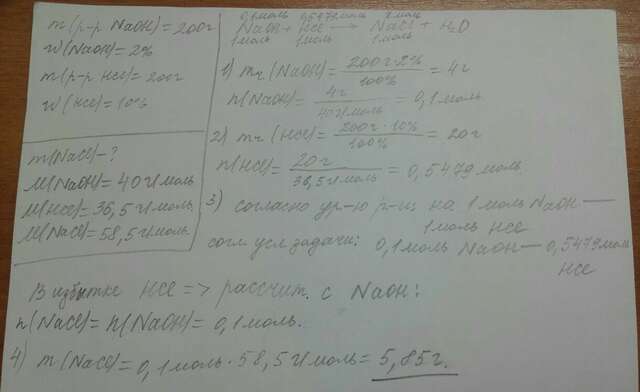 m(р-р NaOH) = 200г
w(NaOH) = 2%
m(р-р HCl) = 200г
w(HCl) = 10%
m(NaCl) - ?
M(NaOH) = 40 г/моль
M(HCl) = 36,5 г/моль
M(NaCl) = 58,5 г/моль
0,1моль 0,5479моль x моль
NaOH + HCl → NaCl + H2O
1моль 1моль 1моль
1) mч (NaOH) = 200г·2% / 100% = 4г
n(NaOH) = 4г / 40г/моль = 0,1моль
2) mч (HCl) = 200г · 10% / 100% = 20г
n(HCl) = 20г / 36,5г/моль = 0,5479 моль
3) согласно ур-ю р-ии на 1 моль NaOH —
1моль HCl
согл усл задачи: 0,1моль NaOH — 0,5479моль
HCl
В избытке HCl => рассчит. с NaOH:
n(NaCl) = n(NaOH) = 0,1моль.
4) m(NaCl) = 0,1моль · 58,5г/моль = 5,85г.